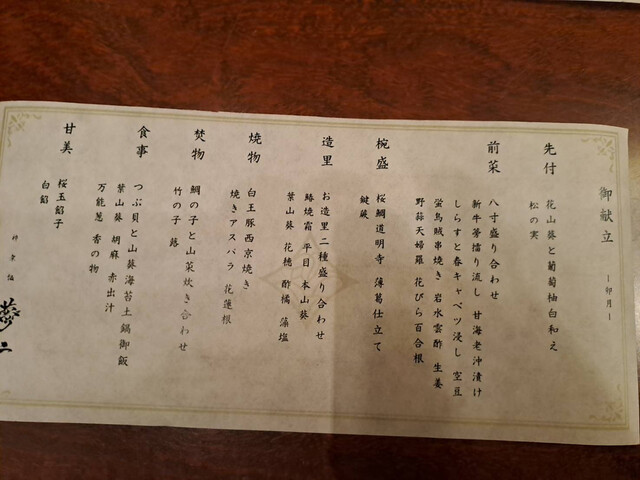 御献立
ー卯月ー
先付
花山葵と葡萄柚白和え
松の実
前菜
八寸盛り合わせ
新牛蒡擂り流し 甘海老沖漬け
しらすと春キャベツ浸し 空豆
蛍烏賊串焼き 岩水雲酢 生姜
野蒜天婦羅 花びら百合根
椀盛
桜鯛道明寺 薄葛仕立て
鍵蕨
造里
お造里二種盛り合わせ
鰆焼霜 平目 本山葵
葉山葵 花穂 酢橘 藻塩
焼物
白王豚西京焼き
焼きアスパラ 花蓮根
焚物
鯛の子と山菜炊き合わせ
竹の子 蕗
食事
つぶ貝と山葵海苔土鍋御飯
葉山葵 胡麻 赤出汁
万能葱 香の物
甘美
桜玉餡子
白餡